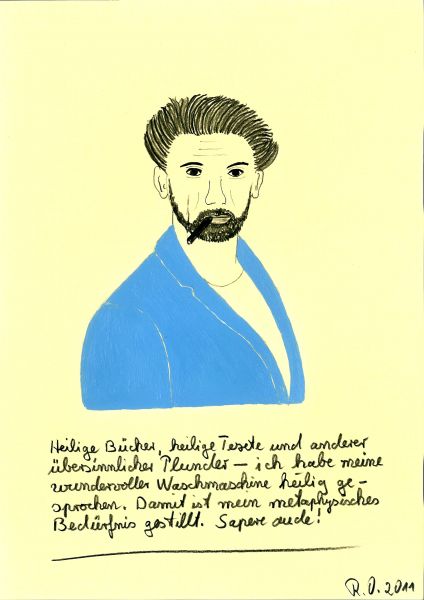 Heilige Bücher, heilige Texte und anderer
übersinnlicher Plunder – ich habe meine
wundervoller Waschmaschine heilig ge-
sprochen. Damit ist mein metaphysisches
Bedürfnis gestillt. Sapere aude!
R.O. 2011